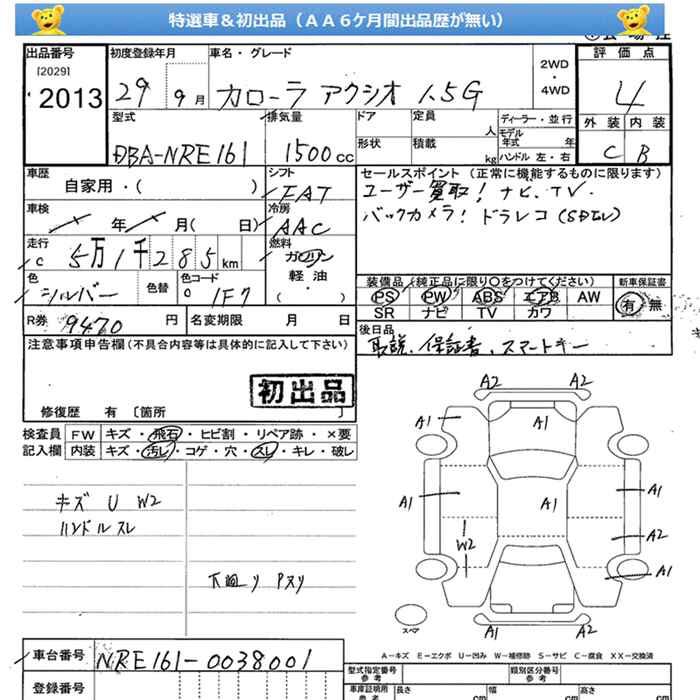 特選車＆初出品（ＡＡ６ケ月間出品歴が無い）
出品番号 初度登録年月 車名・グレード 評価点
[2029]
2013 29 9月 カローラ アクシオ 1.5G 2WD・4WD 4
型式 排気量 ドア 定員 人 ディーラー・並行 外装 内装
DBA-NRE161 1500cc 形状 積載 kg モデル年式 年 ハンドル 左・右 C B
車歴 シフト セールスポイント（正常に機能するものに限ります）
自家用・( ) FAT ユーザー買取！ナビ、TV.
車検 冷房 バックカメラ！ドラレコ(SDなし)
年 月( 日) AAC
走行 燃料
c 5万1千285km ガソリン
軽油
( )
色 色替 色コード 装備品（純正品に限り○をつけてください） 新車保証書
シルバー 1F7 PS PW ABS エアB AW 有 無
SR ナビ TV カワ
R券 9470 円 名変期限 月 日 後日品
注意事項申告欄(不具合内容等は具体的に記入して下さい) 取説、保証書、スマートキー
初出品
修復歴 有〔箇所 〕
検査員 FW キズ・飛石・ヒビ割・リペア跡・×要
記入欄 内装 キズ・汚レ・コゲ・穴・スレ・キレ・破レ
キズ U W2
ハンドルスレ
下廻り Pスリ
A2 A2
A1 A1
A1 A1 A1
W2 A2
A1
スペア A1 A2
A－キズ E－エクボ U－凹み W－補修跡 S－サビ C－腐食 XX－交換済
車台番号 NRE161-0038001 型式指定番号 参考 類別区分番号 参考
登録番号 車庫証明用 参考 長さ cm 幅 cm 高さ cm